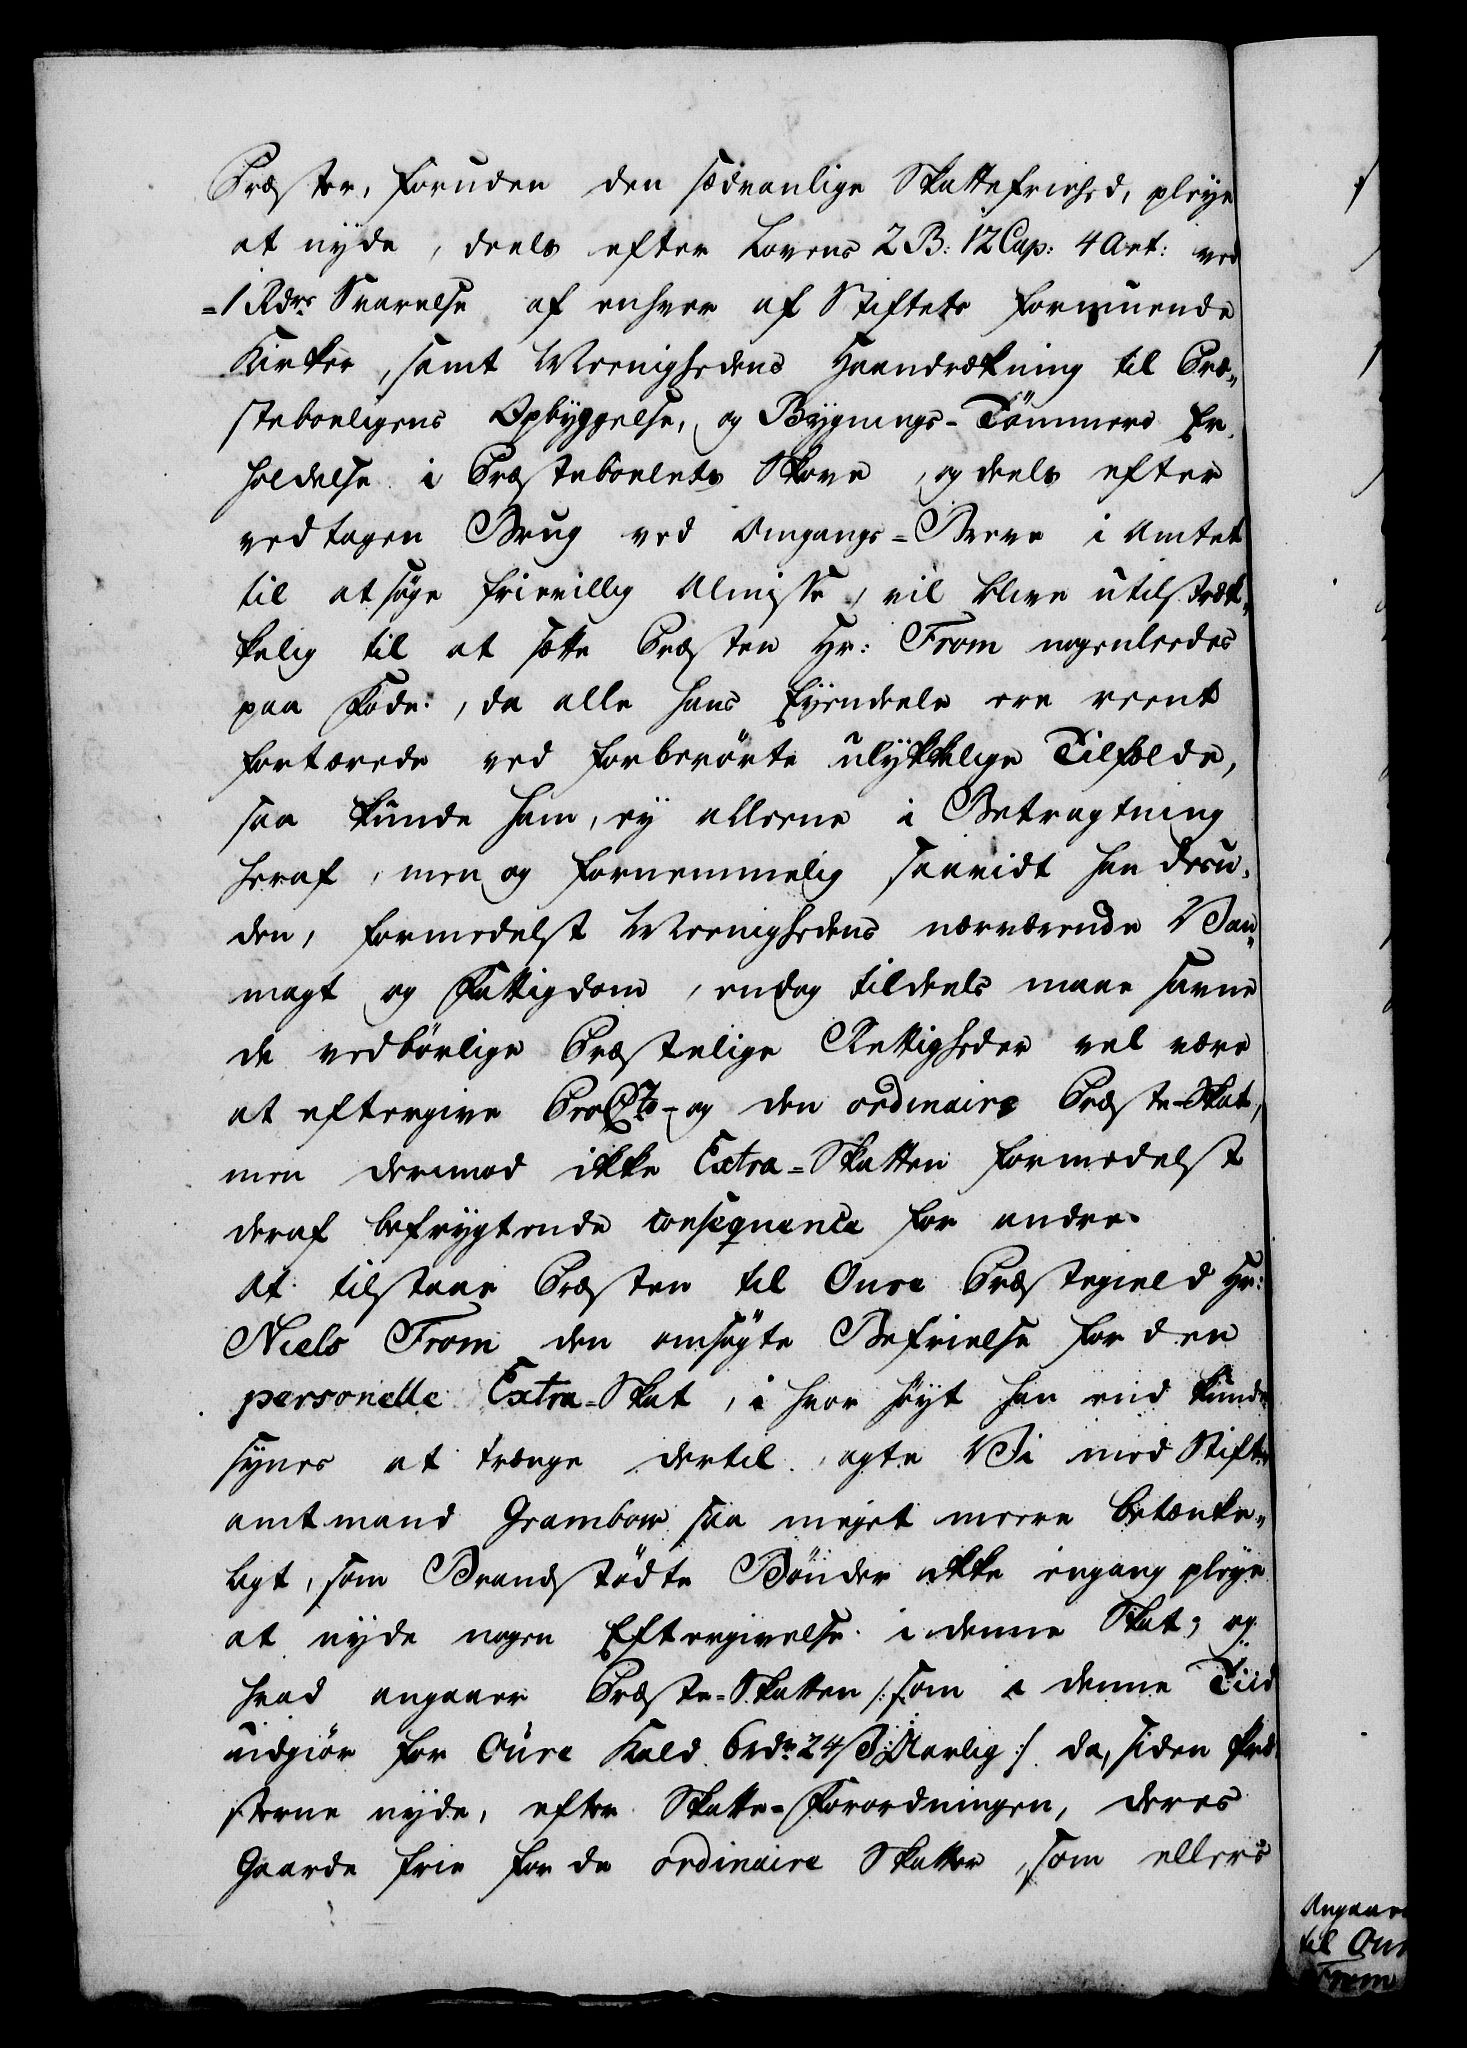 Præster, foruden den sædvanlige Skattefriehed, pleye
at nyde, deels efter Lovens 2 B: 12 Cap: 4 Art: ved
=1 Rdrs Svarelse af enhver af Stiftets formuende
Kirker, samt Meenighedens Haandrækning til Præ„
steboeligens Opbyggelse, og Bygnings-Tömmers Er„
holdelse i Præsteboelets Skove, og deels efter
vedtagen Brug ved Omgangs=Breve i Amtet
til at søge frievillig Almisse, vil blive utilstræk„
kelig til at sætte Præsten Hr: From nogenleedes
paa Fode:, da alle hans Eyendeele ere reent
fortærede ved forberörte ulykkelige Tilfælde,
saa kunde ham, ey alleene i Betragtning
heraf, men og fornemmelig saavidt han desu„
den, formedelst Meenighedens nærværende Van„
magt og Fattigdom, endog tildeels maae savne
de vedbörlige Præstelige Rettigheder vel være
at eftergive og den ordinaire Præste-Skat,
men derimod ikke Extra=Skatten formedelst
deraf befrygtende consequence for andre.
At tilstaae Præsten til Oure Præstegield Hr:
Niels From den ansøgte Befrielse for den
personelle Extra=Skat, i hvor höyt han end kunde
synes at trænge dertil, agte Vi med Stifts
amtmand Grambow saa meget meere betænke„
ligt, som Brandstödte Bönder ikke engang pleye
at nyde nogen Eftergivelse i denne Skat; og
hvad angaaer Præste=Skatten /: som i denne Tiid
udgiör for Oure Kald 6 rdr 24 ß Aarlig :/ da, siden Præ„
sterne nyde, efter Skatte=Forordningen, deres
Gaarde frie for de ordinaire Skatter, som ellers
Angaae
til Our
From